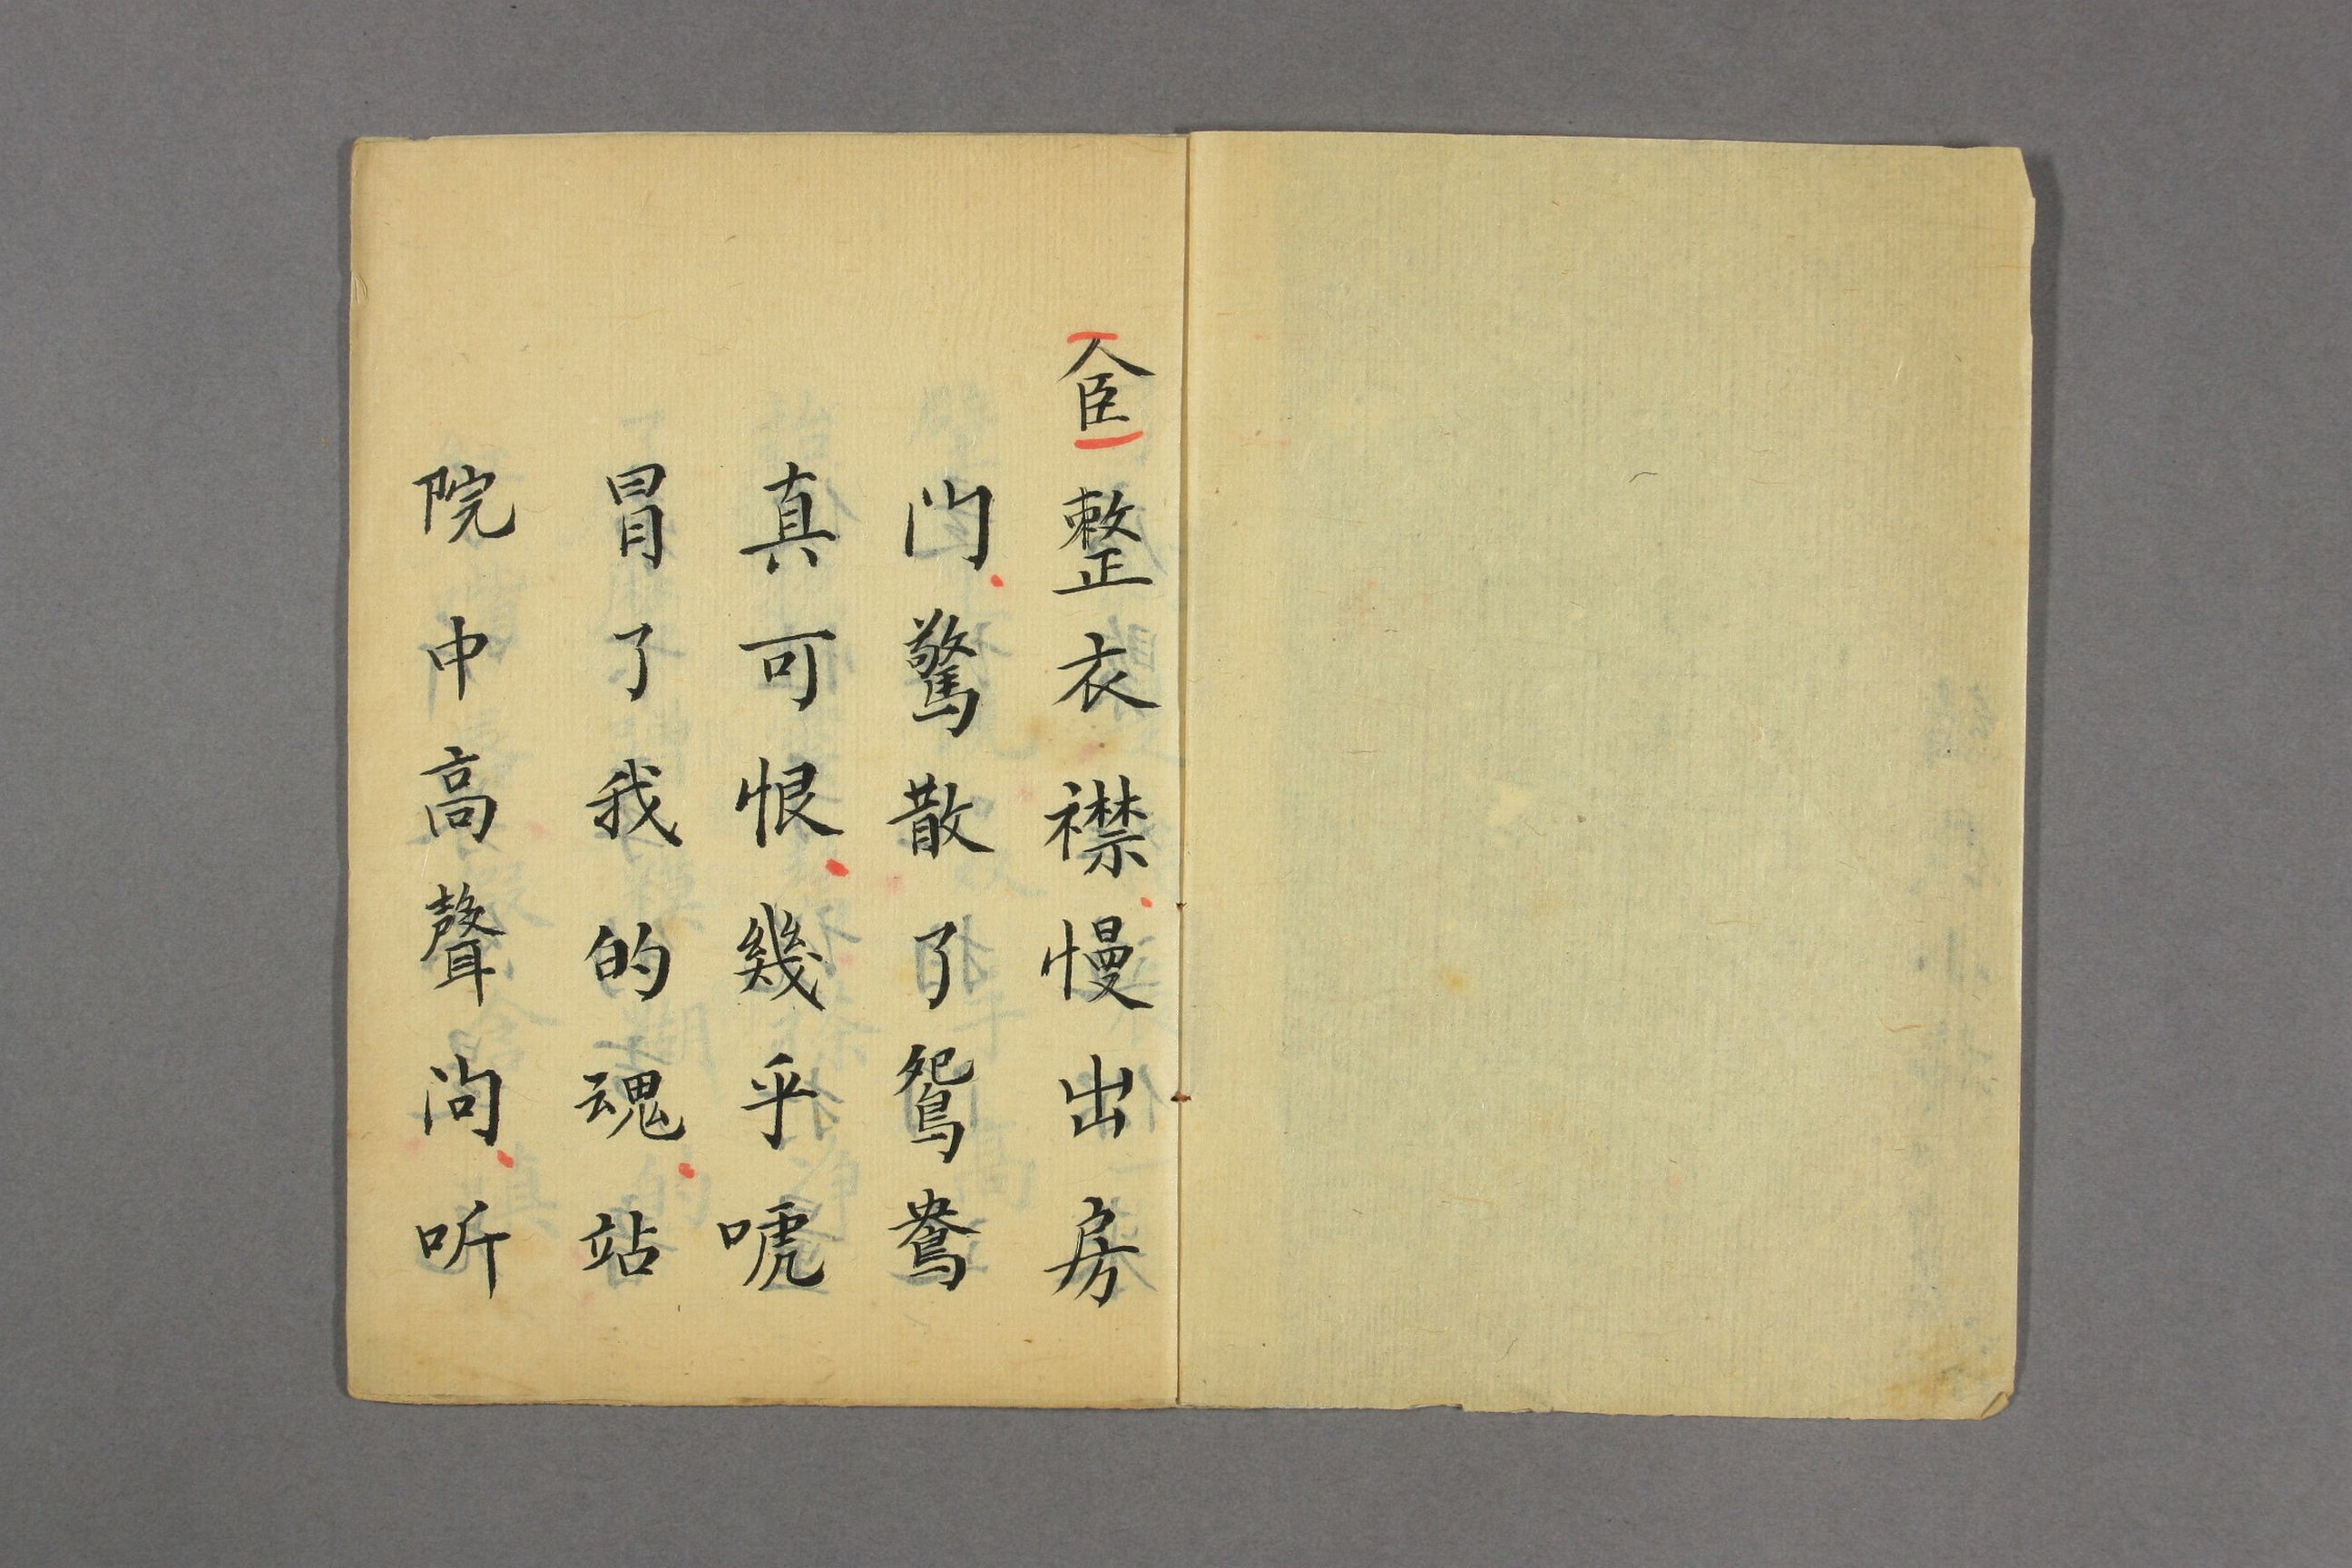 整衣襟慢出房
门驚散了鴛鴦
真可恨幾乎唬
冒了我的魂站
院中高聲问听